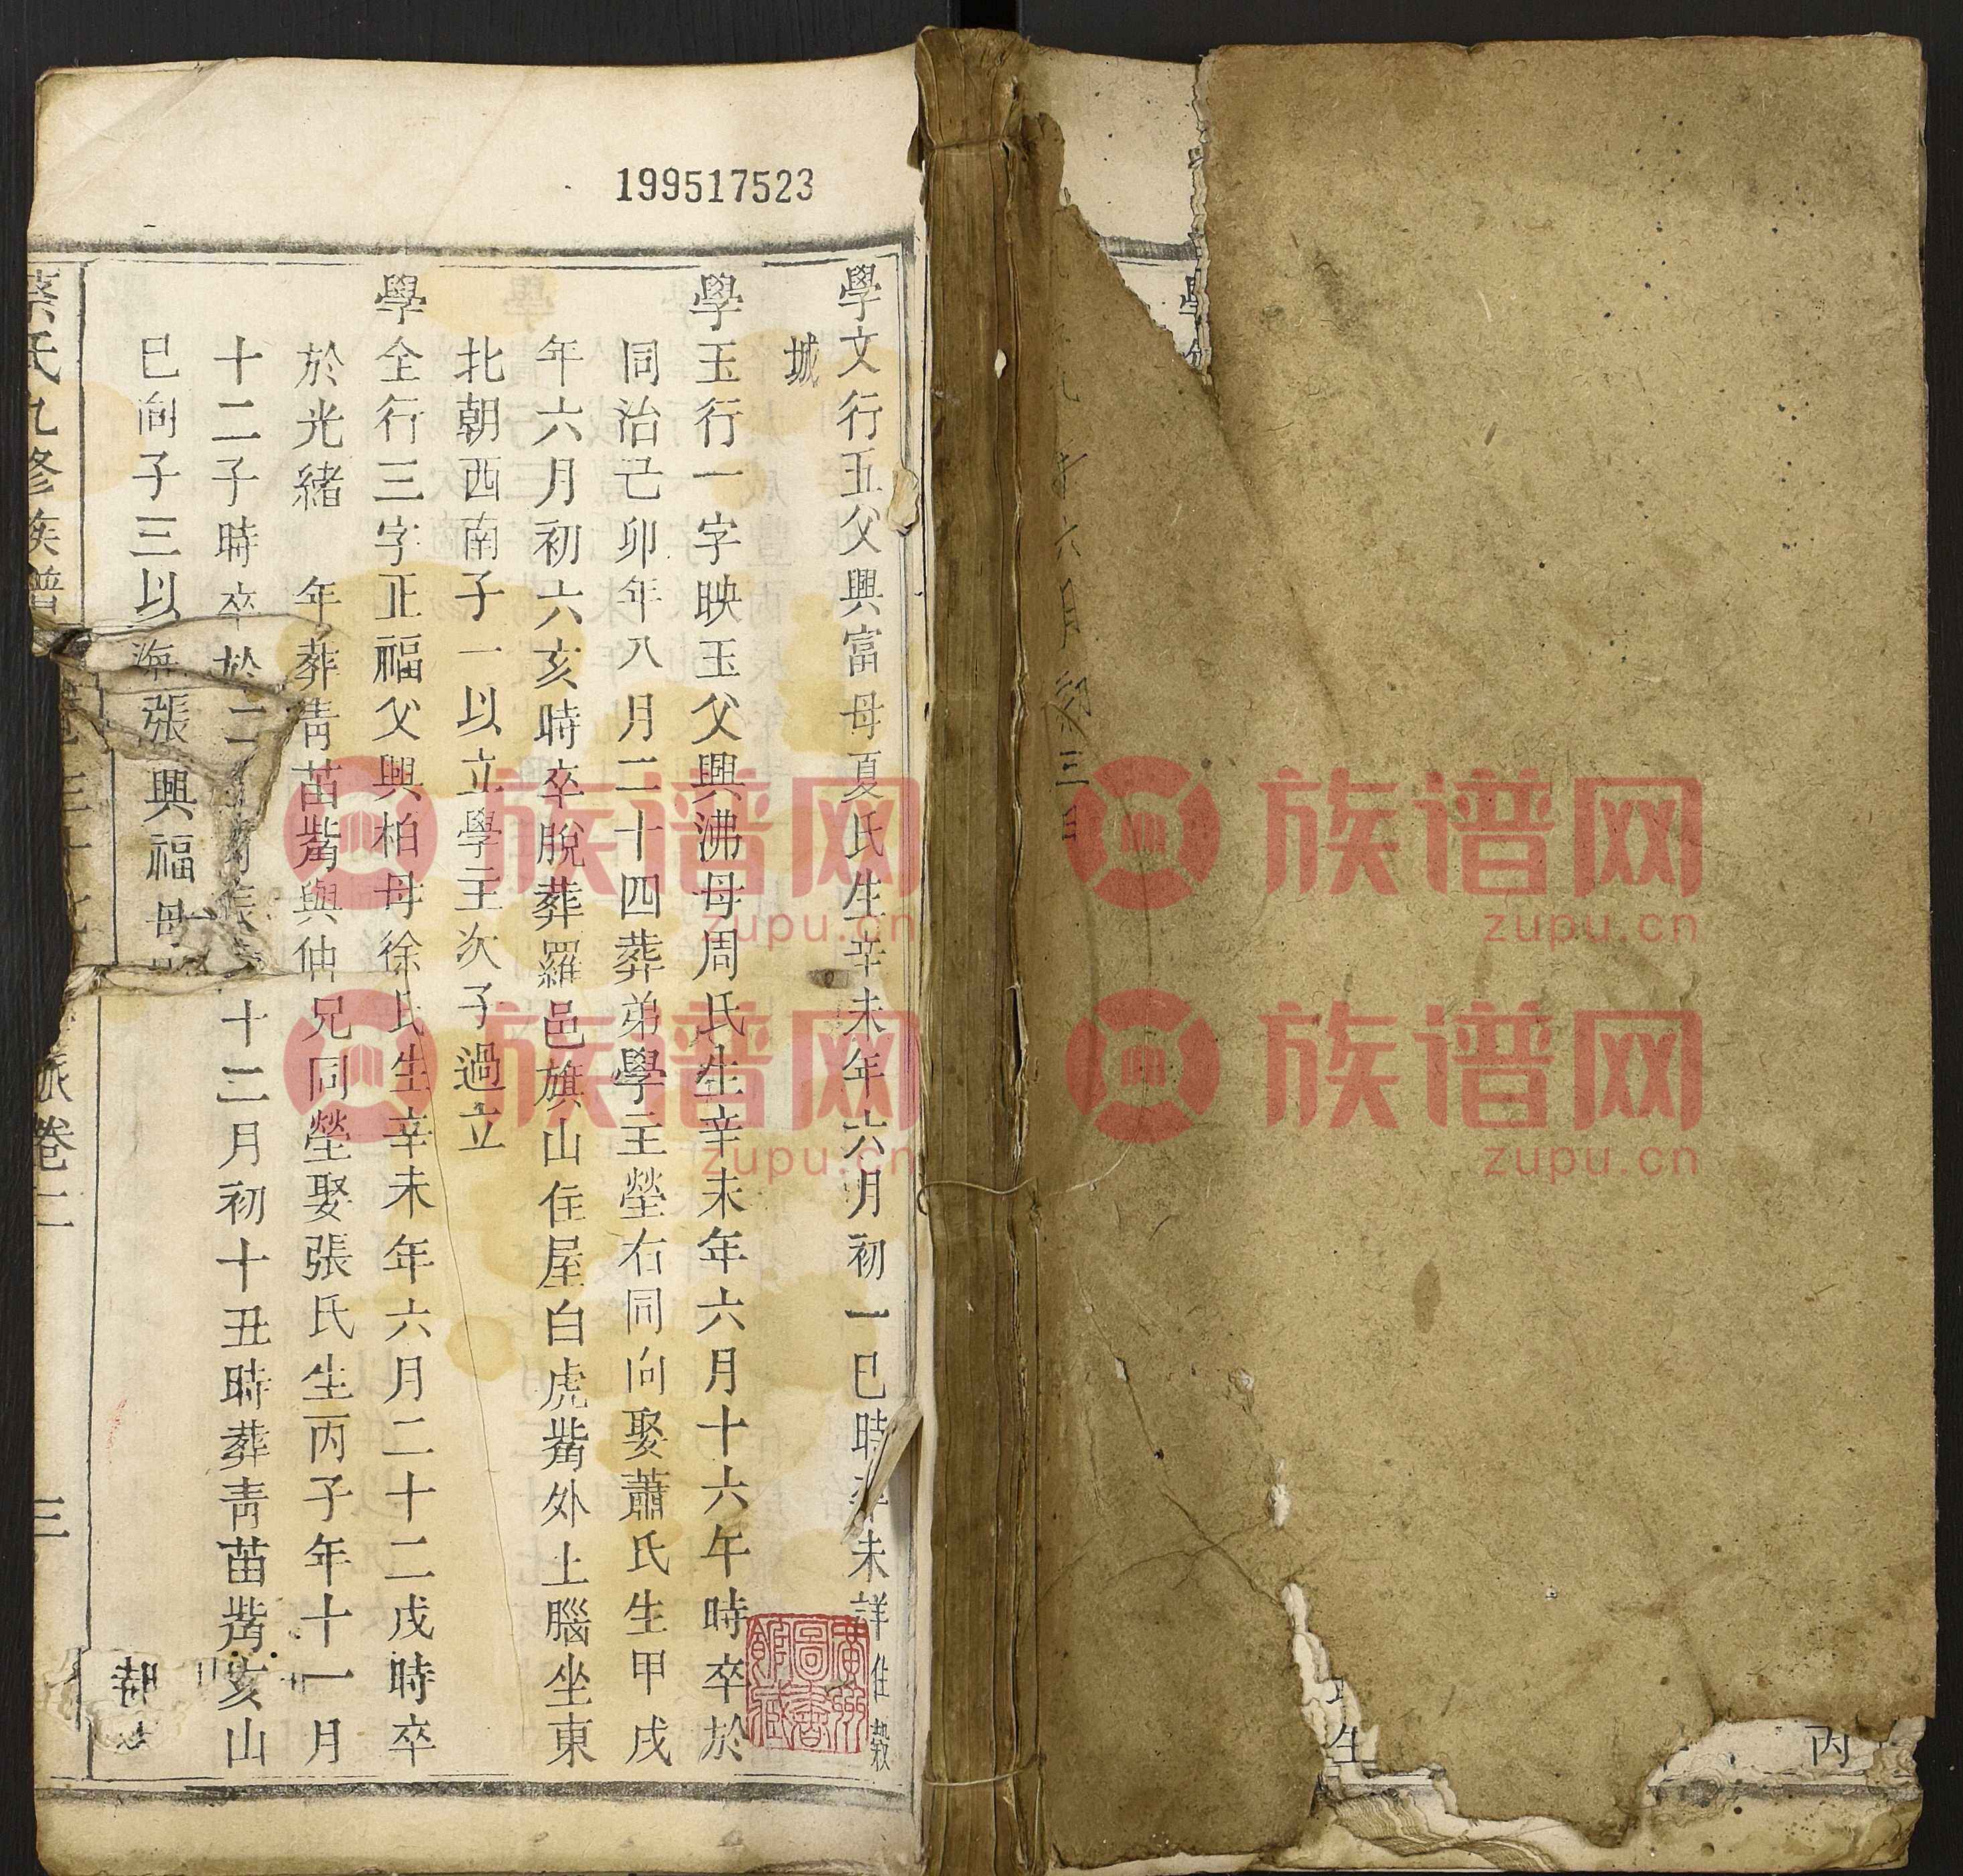 199517523
學文行五父興富母夏氏生辛未年六月初一巳時卒未詳
城
學玉行一字映玉父興沸母周氏生辛未年六月十六午時卒於
同治己卯年八月二十四葬弟學主塋右同向娶蕭氏生甲戌
年六月初六亥時卒脫葬羅邑旗山住屋白虎嘴外上腦坐東
北朝西南子一以立學主次子過立
學全行三字正福父興柏母徐氏生辛未年六月二十二戌時卒
於光緒 年葬靑苗嘴與仲兄同塋娶張氏生丙子年十一月
十二子時卒於二 十二月初十丑時葬靑苗嘴亥山
巳向子三以海張興福母
時
氏九修族譜
三十
派卷二
三
六月初三日
生
丙
廣州圖書館藏
族谱网
zupu.cn
族谱网
zupu.cn
族谱网
zupu.cn
族谱网
zupu.cn